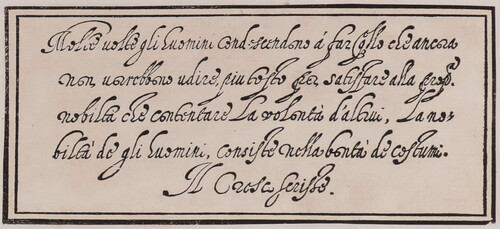 Molte volte gli huomini cond-scendono á far q̃llo che ancora
non vorrebbono udire, piu tosto per satisfare alla prop.ª
nobiltà che contentare la volontà d'altrui, La no-
biltà de gli huomini, consiste nella bontà de costumi.
Il Cresci scrisse.